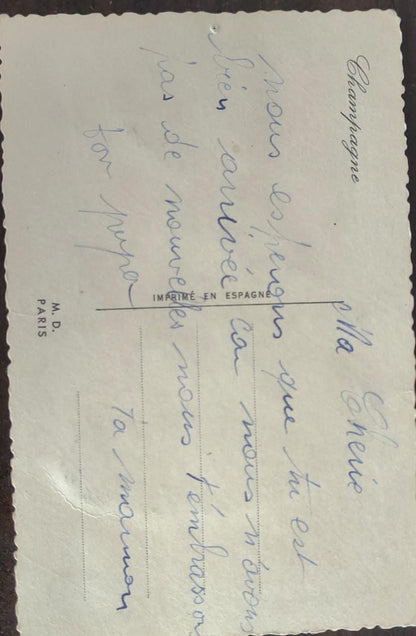 Champagne
Ma Cherie
nous esperons que tu est
bien arrivée car nous n'avons
pas de nouvelles nous t'embrasson
ton papa Ta maman
IMPRIMÉ EN ESPAGNE
M. D.
PARIS